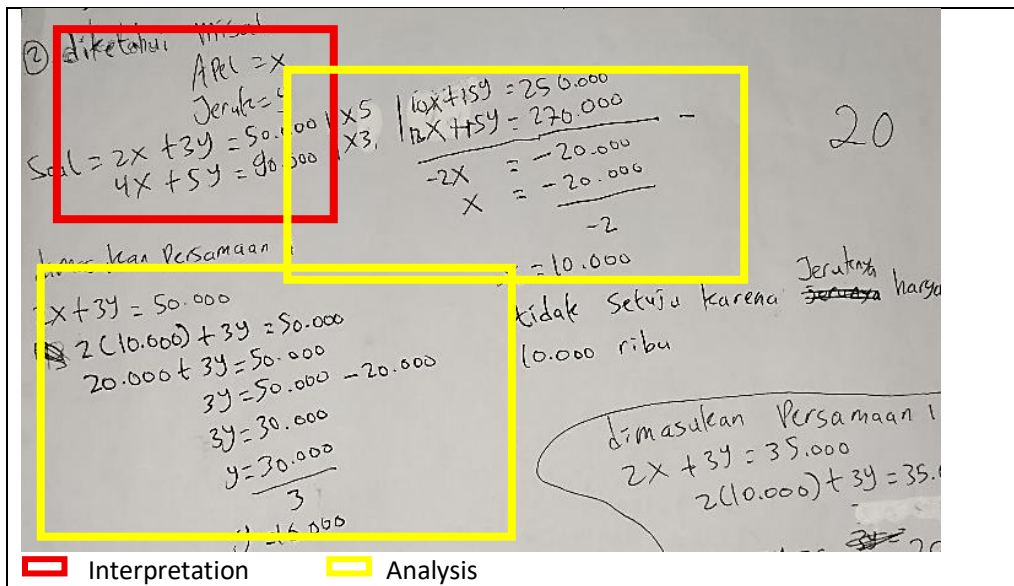 ② diketahui misal
Apel = x
Jeruk = y
Soal = 2x + 3y = 50.000 | x5 | 10x + 15y = 250.000
4x + 5y = 90.000 | x3 | 12x + 15y = 270.000 -
-2x = -20.000
x = -20.000
-2
= 10.000
20
Persamaan
2x + 3y = 50.000
2(10.000) + 3y = 50.000
20.000 + 3y = 50.000
3y = 50.000 - 20.000
3y = 30.000
y = 30.000
3
tidak setuju karena Jeruknya harga
10.000 ribu
dimasukan Persamaan 1
2x + 3y = 35.000
2(10.000) + 3y = 35.
Interpretation
Analysis